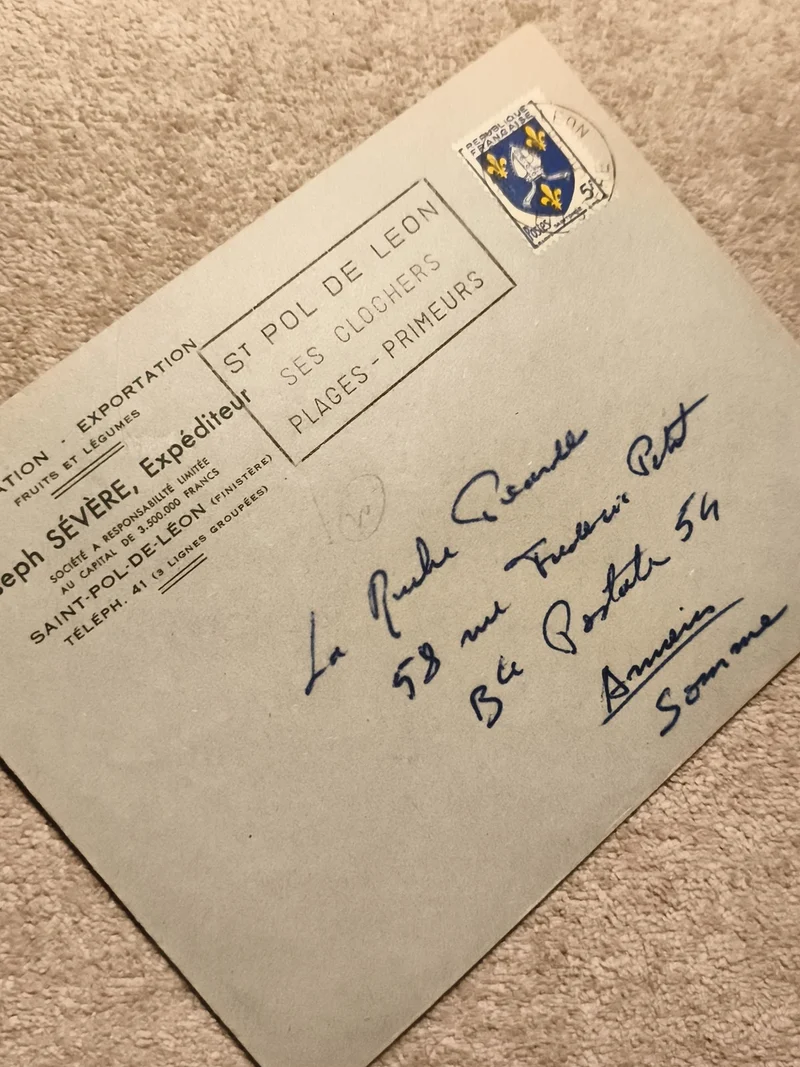 REPUBLIQUE
FRANÇAISE
5F
Postes
EON
ST POL DE LEON
SES CLOCHERS
PLAGES - PRIMEURS
ATION - EXPORTATION
FRUITS ET LÉGUMES
seph SÉVÈRE, Expéditeur
SOCIÉTÉ A RESPONSABILITÉ LIMITÉE
AU CAPITAL DE 3.500.000 FRANCS
SAINT-POL-DE-LÉON (FINISTÈRE)
TÉLÉPH. 41 (3 LIGNES GROUPÉES)
La Ruche Picarde
58 rue Frederic Petit
Bte Postale 54
Amiens
Somme